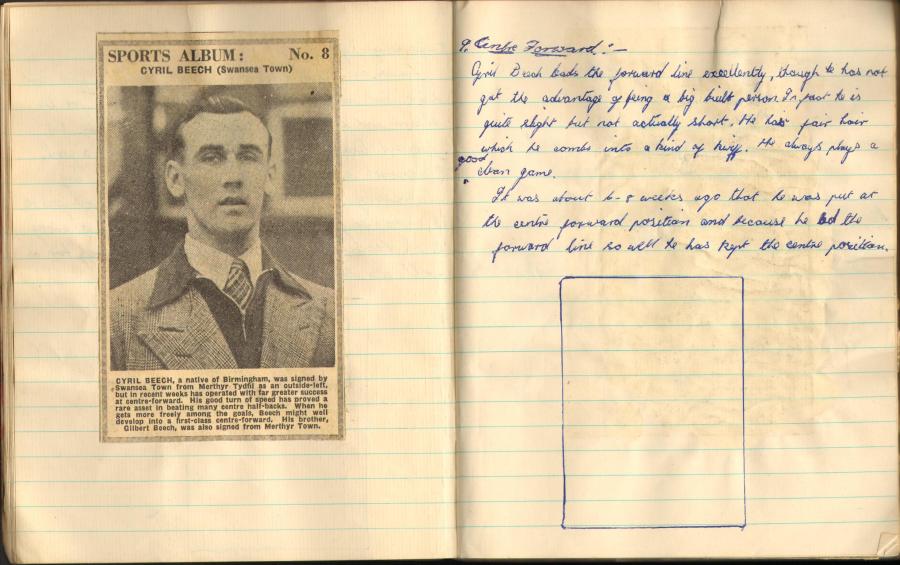 SPORTS ALBUM: No. 8
CYRIL BEECH (Swansea Town)
CYRIL BEECH, a native of Birmingham, was signed by
Swansea Town from Merthyr Tydfil as an outside-left,
but in recent weeks has operated with far greater success
at centre-forward. His good turn of speed has proved a
rare asset in beating many centre half-backs. When he
gets more freely among the goals, Beech might well
develop into a first-class centre-forward. His brother,
Gilbert Beech, was also signed from Merthyr Town.
9. Centre Forward:-
Cyril Beech leads the forward line excellently, though he has not
got the advantage of being a big built person. In fact he is
quite slight but not actually short. He has fair hair
which he combs into a kind of . He always plays a
good
clean game.
It was about 6-8 weeks ago that he was put at
the centre forward position and because he led the
forward line so well he has kept the centre position.